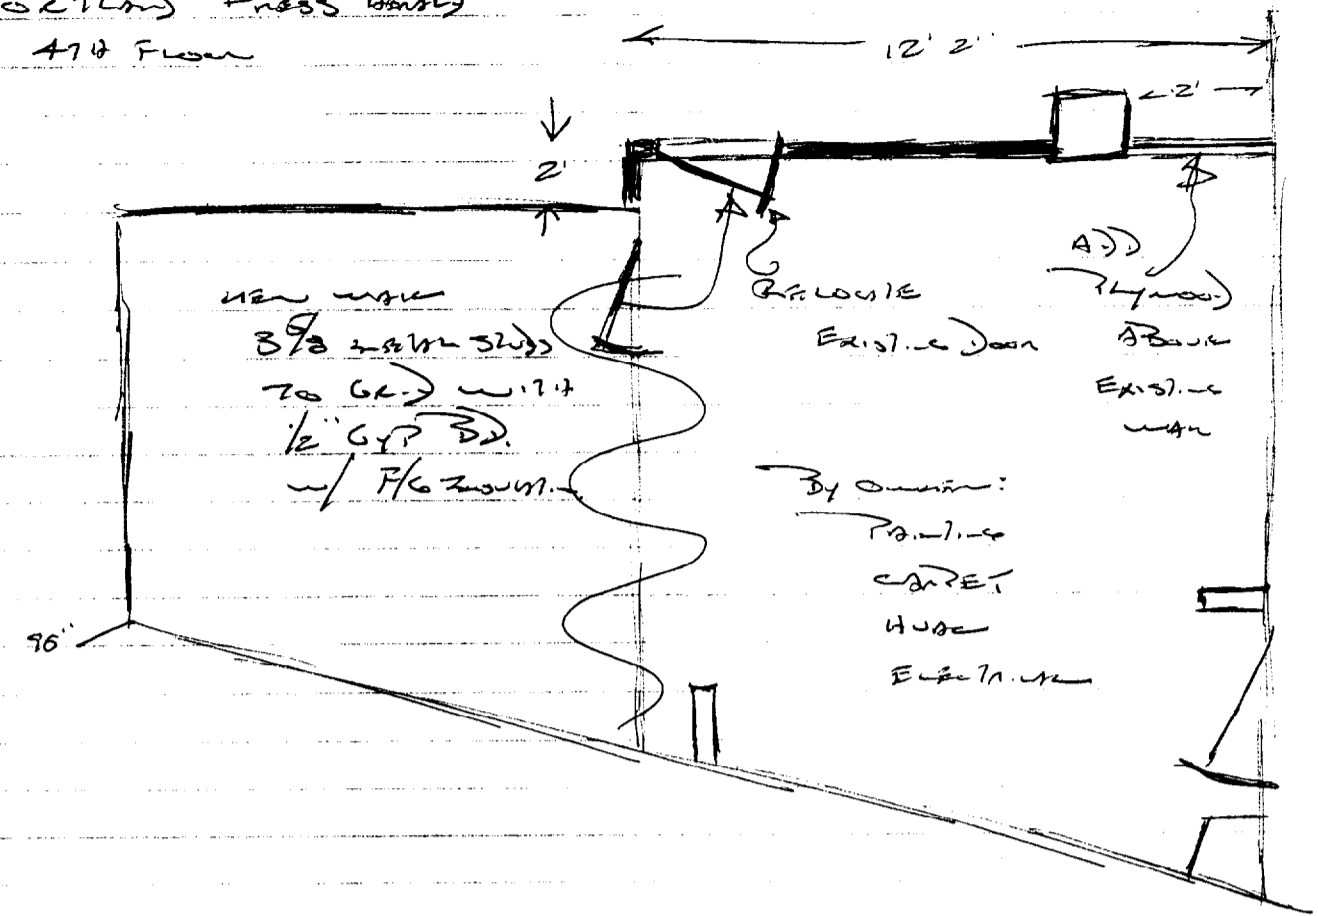 Portland Press Herald
4TH Floor
12' 2"
2'
2'
New Wall
3 5/8 metal studs
to Grid with
1/2" Gyp BD.
w/ F/G Insulation
Relocate
Existing Door
ADD
Plywood
Above
Existing
Wall
By Owner:
Painting
Carpet
HVAC
Electrical
96"